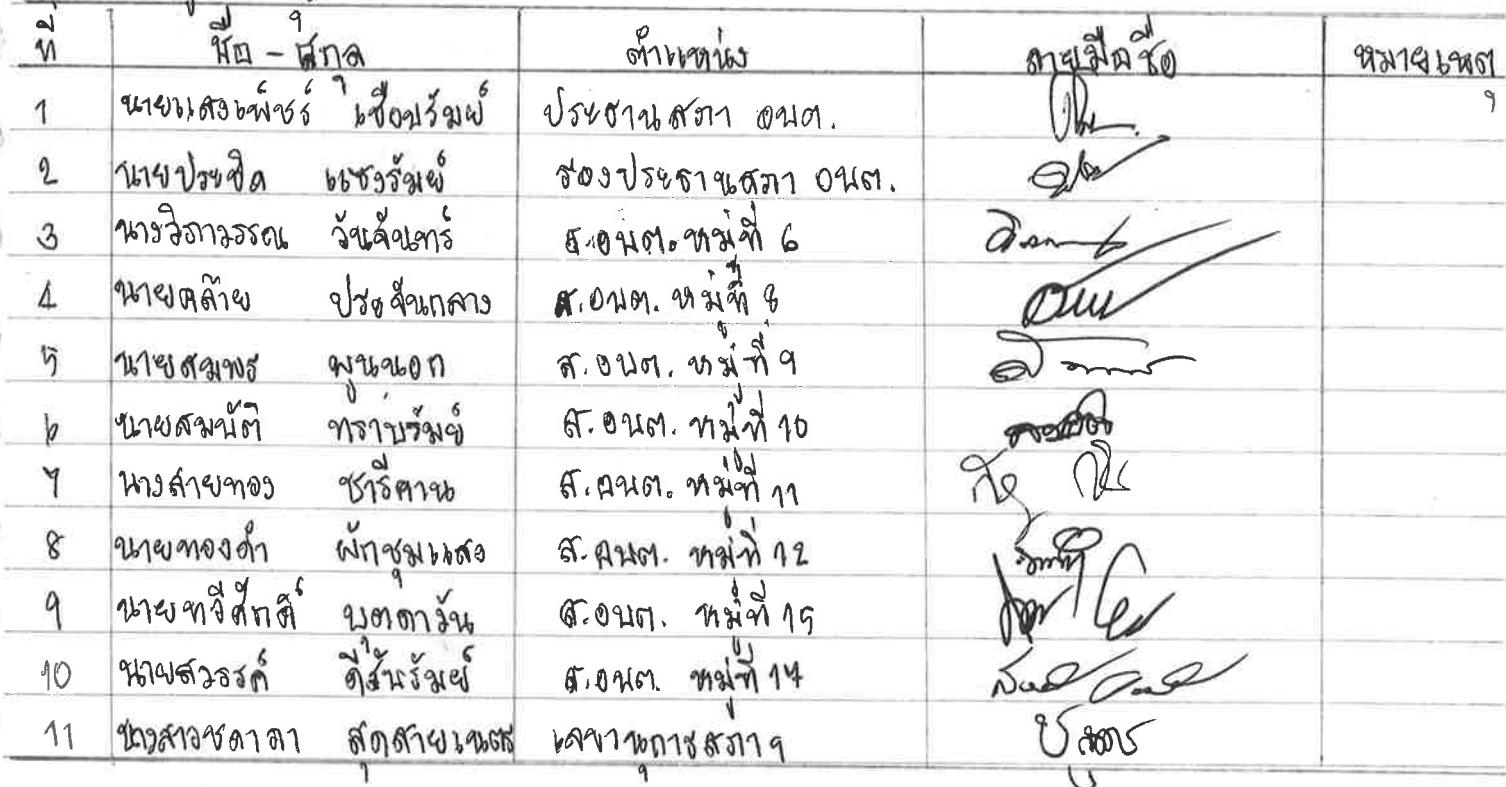 ที่ ชื่อ - สกุล ตำแหน่ง ลายมือชื่อ หมายเหตุ
1 นายแสงเพ็ชร์ เชื่อบรัมย์ ประธานสภา อบต.
2 นายประชิด แซงรัมย์ รองประธานสภา อบต.
3 นางวิภาวรรณ วันจันทร์ ส.อบต. หมู่ที่ 6
4 นายคล้าย ประจันกลาง ส.อบต. หมู่ที่ 8
5 นายสมพร พูนนอก ส.อบต. หมู่ที่ 9
6 นายสมบัติ ทราบรัมย์ ส.อบต. หมู่ที่ 10
7 นางสายทอง ชารีคาน ส.อบต. หมู่ที่ 11
8 นายทองดำ ผักชุมแสง ส.อบต. หมู่ที่ 12
9 นายทวีศักดิ์ บุตดาวัน ส.อบต. หมู่ที่ 15
10 นายสวรรค์ ดีสันรัมย์ ส.อบต. หมู่ที่ 17
11 นางสาวชดาภา สุดสายเนตร เลขานุการสภาฯ